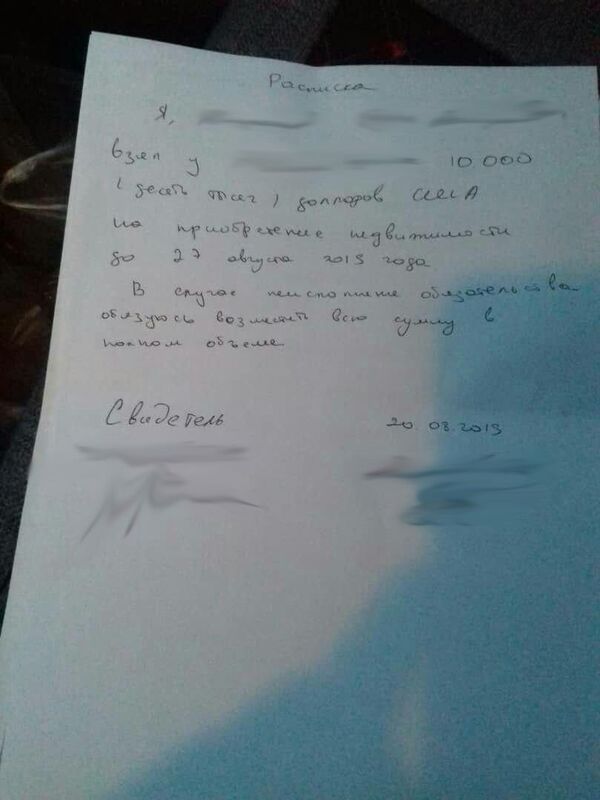 Расписка
Я,
взял у 10.000
(десять тысяч) долларов США
на приобретение недвижимости
до 27 августа 2013 года
В случае неисполние обязательства
обязуюсь возместить всю сумму в
полном объеме.
Свидетель
20.08.2013